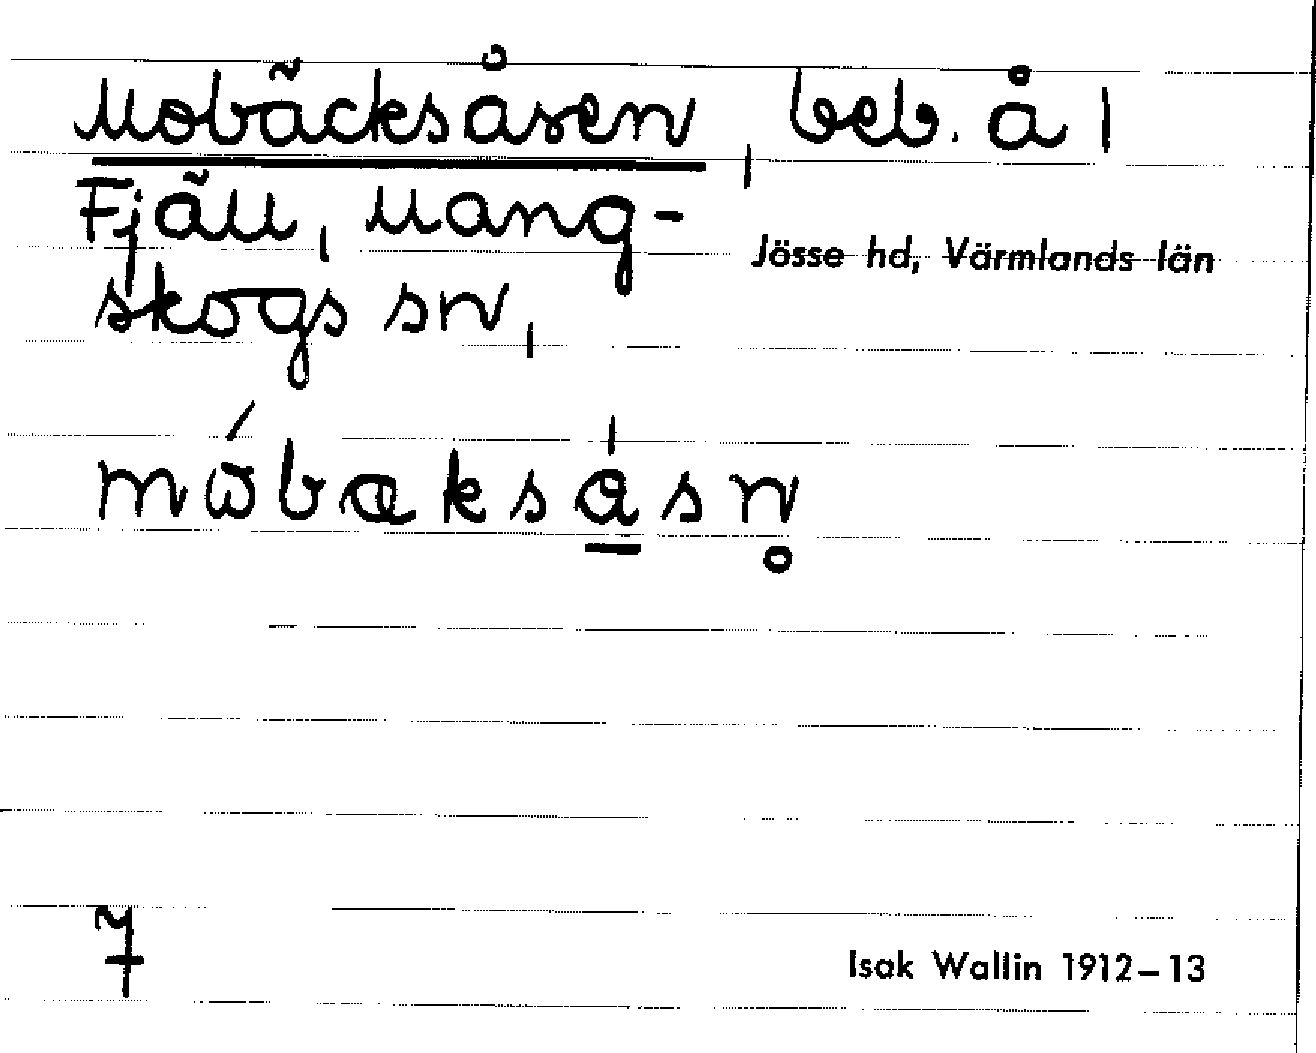 Mobäcksåsen, beb. å 1
Fjäll, Mang-
skogs sn,
Jösse hd, Värmlands län
mώbaksa̱̍sn̥
7
Isak Wallin 1912–13